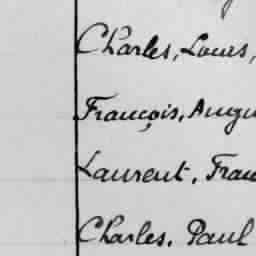 Charles, Louis,
François, Augu
Laurent, Fran
Charles, Paul